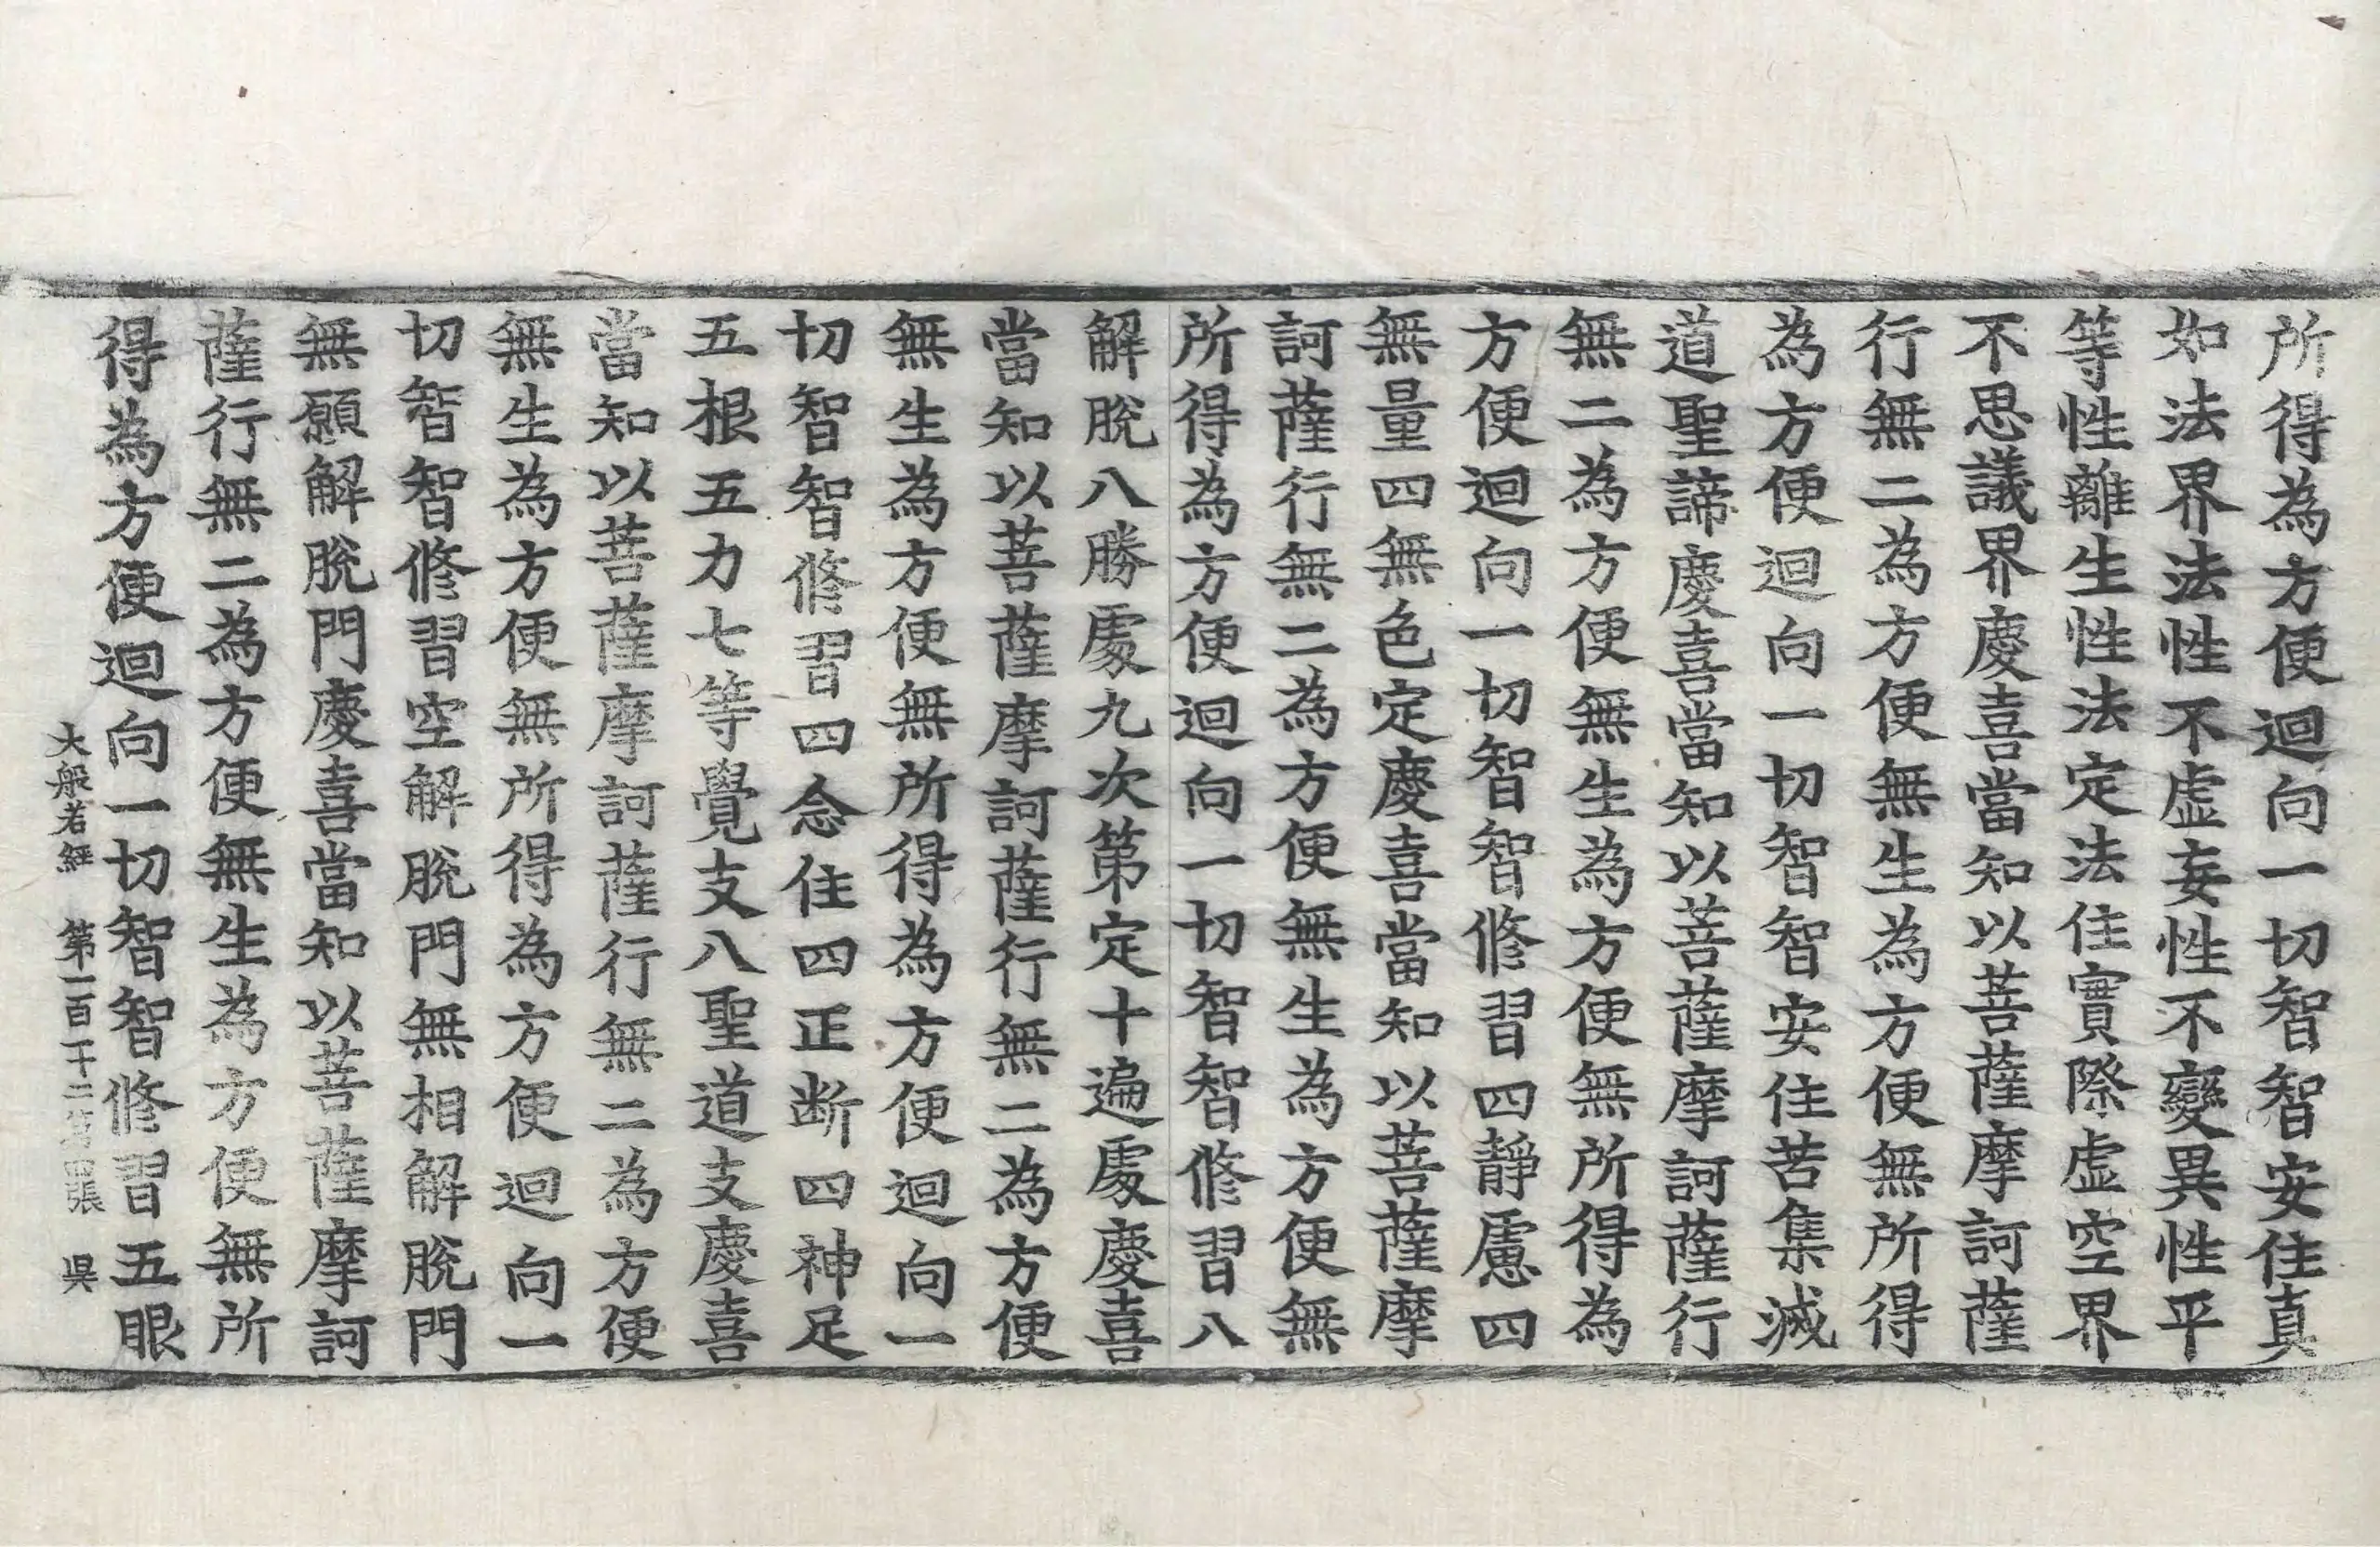 所得為方便迴向一切智智安住真
如法界法性不虛妄性不變異性平
等性離生性法定法住實際虛空界
不思議界慶喜當知以菩薩摩訶薩
行無二為方便無生為方便無所得
為方便迴向一切智智安住苦集滅
道聖諦慶喜當知以菩薩摩訶薩行
無二為方便無生為方便無所得為
方便迴向一切智智修習四靜慮四
無量四無色定慶喜當知以菩薩摩
訶薩行無二為方便無生為方便無
所得為方便迴向一切智智修習八
解脫八勝處九次第定十遍處慶喜
當知以菩薩摩訶薩行無二為方便
無生為方便無所得為方便迴向一
切智智修習四念住四正斷四神足
五根五力七等覺支八聖道支慶喜
當知以菩薩摩訶薩行無二為方便
無生為方便無所得為方便迴向一
切智智修習空解脫門無相解脫門
無願解脫門慶喜當知以菩薩摩訶
薩行無二為方便無生為方便無所
得為方便迴向一切智智修習五眼
大般若經 第一百一十二 第四張 吳